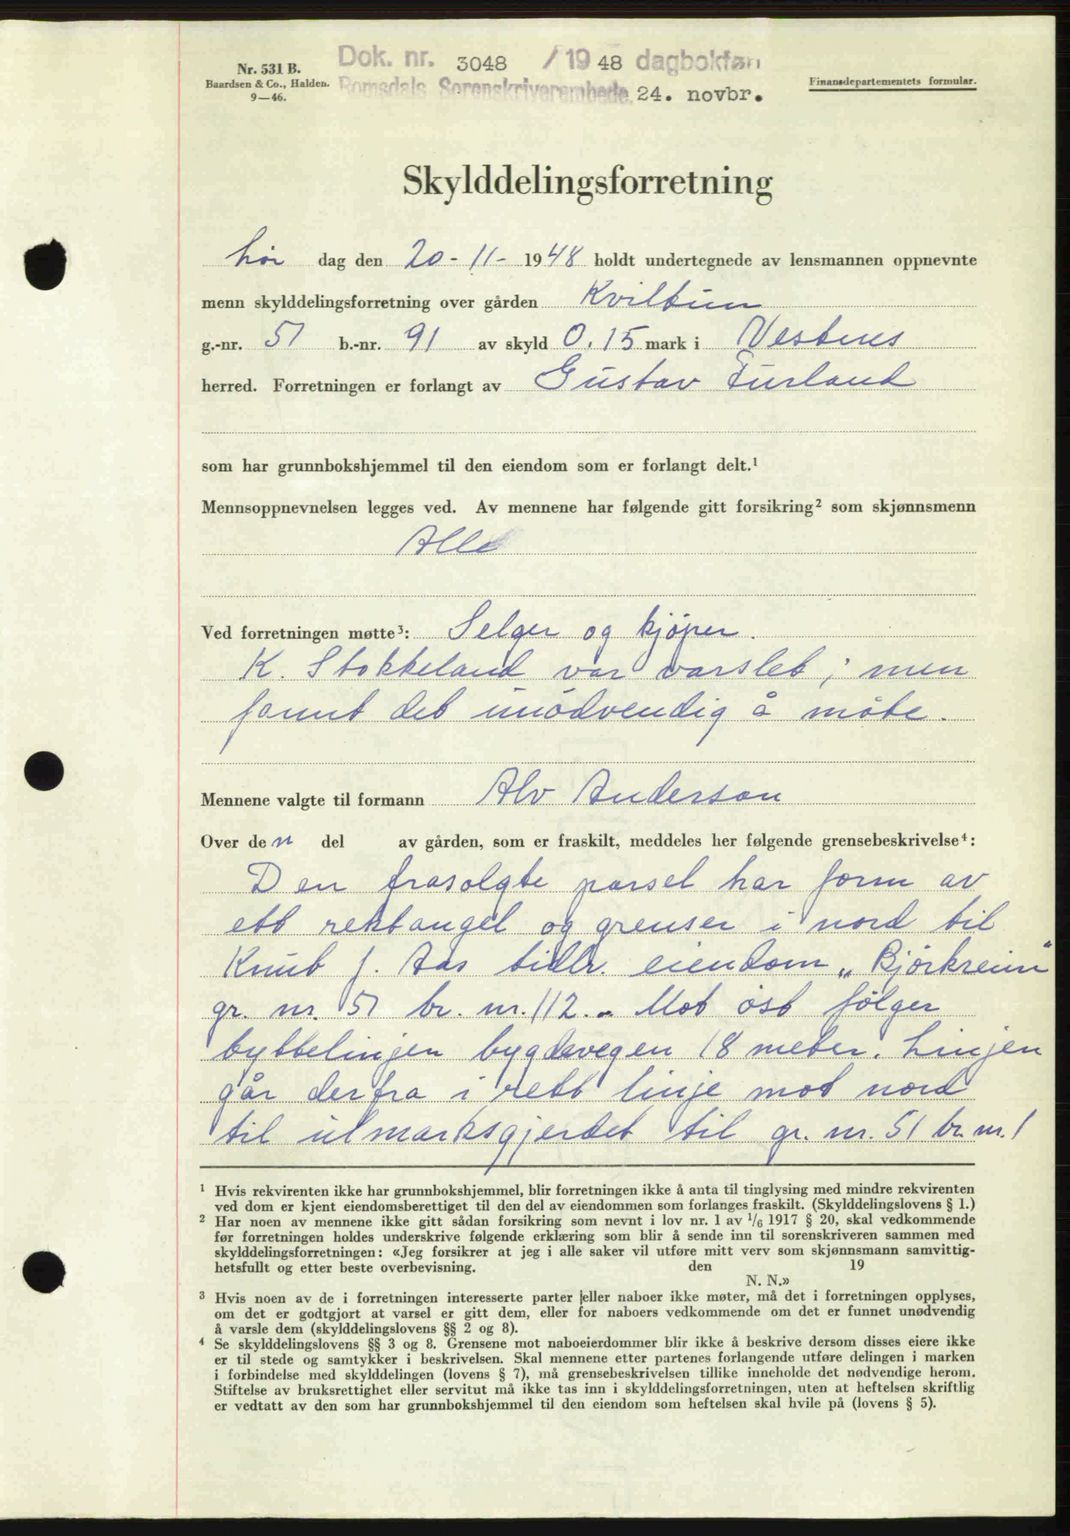 Nr. 531 B.
Baardsen & Co., Halden.
9—46.
Dok. nr. 3048 / 19 48 dagbokført
Romsdals Sorenskriverembede. 24. novbr.
Finansdepartementets formular.
Skylddelingsforretning
Lør dag den 20 - 11 - 1948 holdt undertegnede av lensmannen oppnevnte
menn skylddelingsforretning over gården Kviltun
g.-nr. 51 b.-nr. 91 av skyld 0,15 mark i Vestnes
herred. Forretningen er forlangt av Gustav Furland
som har grunnbokshjemmel til den eiendom som er forlangt delt.¹
Mennsoppnevnelsen legges ved. Av mennene har følgende gitt forsikring² som skjønnsmenn
Alle
Ved forretningen møtte³: Selger og kjøper.
K. Stokkeland var varslet; men
fannt det unødvendig å møte.
Mennene valgte til formann Alv Anderson
Over den del av gården, som er fraskilt, meddeles her følgende grensebeskrivelse⁴:
Den frasolgte parsel har form av
ett rektangel og grenser i nord til
Knut J. Aas tidlr. eiendom „Bjørkreim"
gr. nr. 51 br. nr. 112. - Mot øst følger
byttelinjen bygdevegen 18 meter. Linjen
går derfra i rett linje mot nord
til utmarksgjerdet til gr. nr. 51 br. nr. 1
¹ Hvis rekvirenten ikke har grunnbokshjemmel, blir forretningen ikke å anta til tinglysing med mindre rekvirenten
ved dom er kjent eiendomsberettiget til den del av eiendommen som forlanges fraskilt. (Skylddelingslovens § 1.)
² Har noen av mennene ikke gitt sådan forsikring som nevnt i lov nr. 1 av 1/6 1917 § 20, skal vedkommende
før forretningen holdes underskrive følgende erklæring som blir å sende inn til sorenskriveren sammen med
skylddelingsforretningen: «Jeg forsikrer at jeg i alle saker vil utføre mitt verv som skjønnsmann samvittig-
hetsfullt og etter beste overbevisning. den 19
N. N.»
³ Hvis noen av de i forretningen interesserte parter eller naboer ikke møter, må det i forretningen opplyses,
om det er godtgjort at varsel er gitt dem, eller for naboers vedkommende om det er funnet unødvendig
å varsle dem (skylddelingslovens §§ 2 og 8).
⁴ Se skylddelingslovens §§ 3 og 8. Grensene mot naboeierdommer blir ikke å beskrive dersom disses eiere ikke
er til stede og samtykker i beskrivelsen. Skal mennene etter partenes forlangende utføre delingen i marken
i forbindelse med skylddelingen (lovens § 7), må grensebeskrivelsen tillike inneholde det nødvendige herom.
Stiftelse av bruksrettighet eller servitut må ikke tas inn i skylddelingsforretningen, uten at heftelsen skriftlig
er vedtatt av den som har grunnbokshjemmel til den eiendom som heftelsen skal hvile på (lovens § 5).